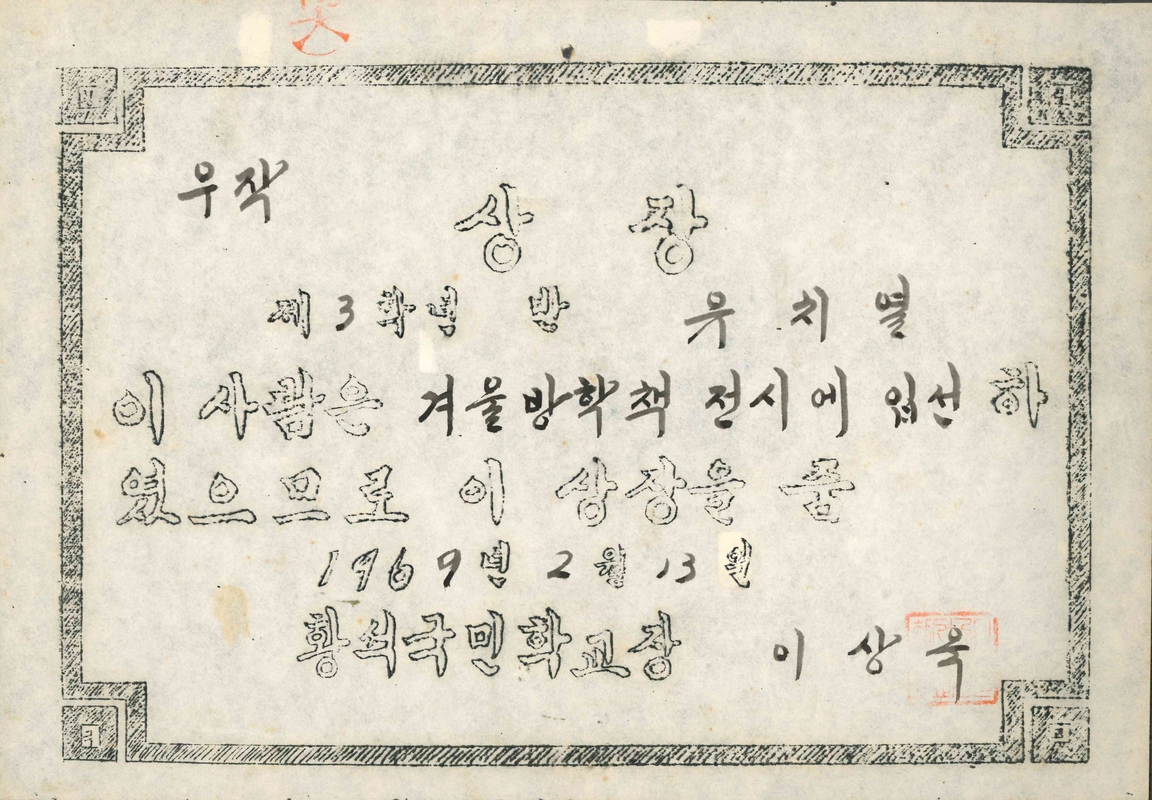 우작
상 장
제 3 학년 반 유 치 열
이 사람은 겨울방학책 전시에 입선 하
였으므로 이 상장을 줌
1969년 2월 13일
황석국민학교장 이 상 욱